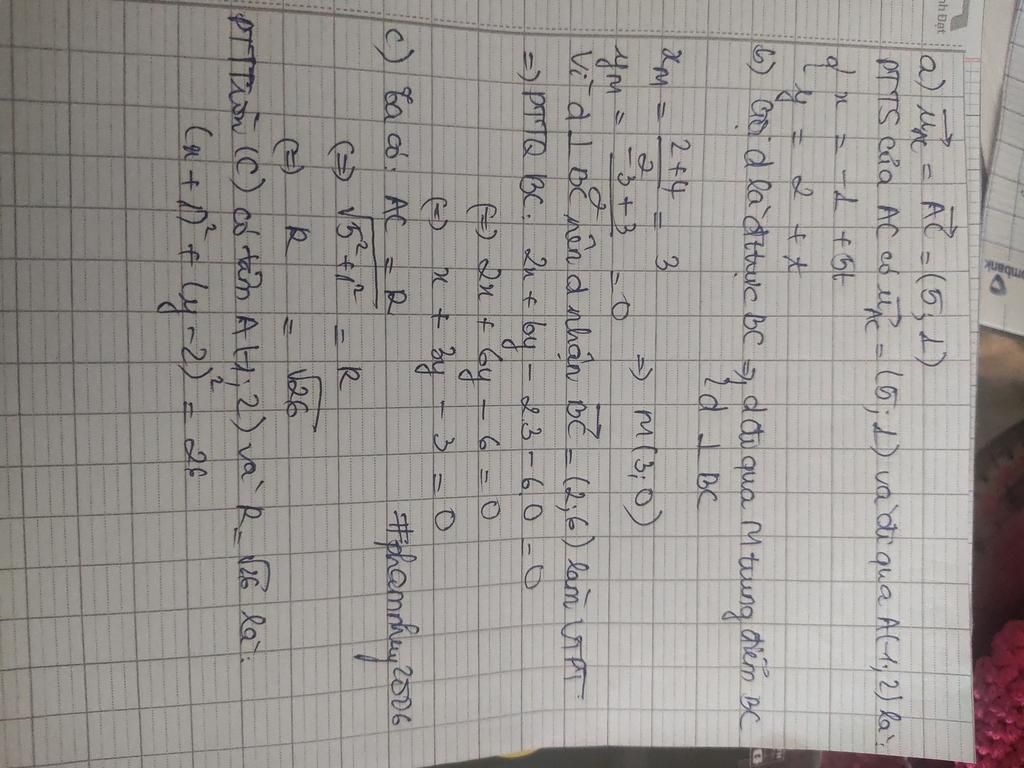 a) u⃗_AC = A⃗C = (5; 1)
PTTS của AC có u⃗_AC = (5; 1) và đi qua A(-1; 2) là:
{ x = -1 + 5t
{ y = 2 + t
b) Gọi d là đ trực BC => { d đi qua M trung điểm BC
{ d ⊥ BC
x_M = (2+4)/2 = 3
y_M = (-3+3)/2 = 0 => M(3; 0)
Vì d ⊥ BC nên d nhận B⃗C = (2; 6) làm VTPT
=) PTTQ BC: 2x + 6y - 2.3 - 6.0 = 0
(=) 2x + 6y - 6 = 0
(=) x + 3y - 3 = 0
c) Ta có: AC = R
#phamthuy2006
(=) √(5² + 1²) = R
(=) R = √26
PTTTròn (C) có tâm A(-1; 2) và R = √26 là:
(x + 1)² + (y - 2)² = 26
inh Đạt
ombank